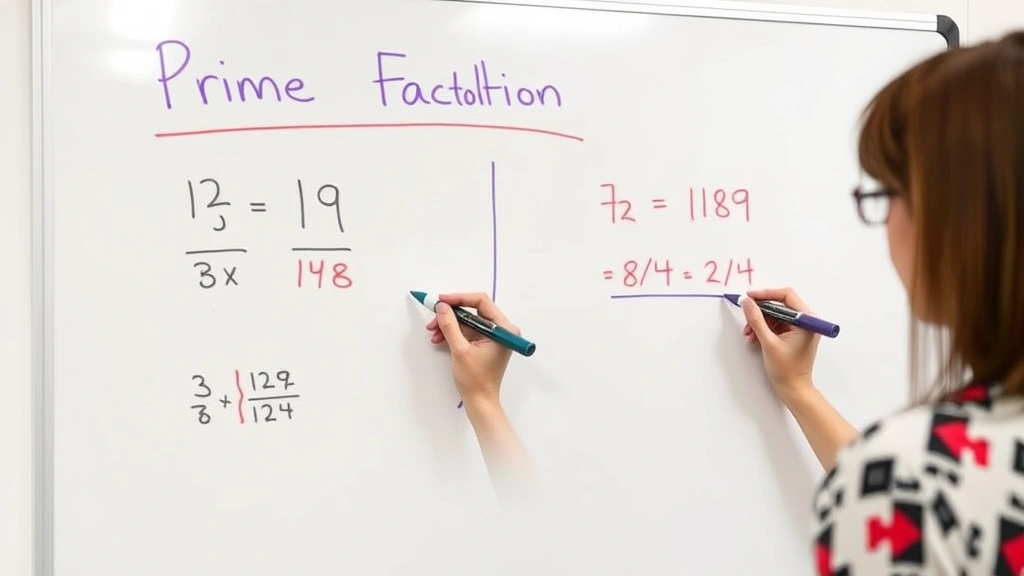 Prime Factoltion
12, = 19
3x 148
3/8 + 129/124
72 = 1189
= 8/4 = 2/4